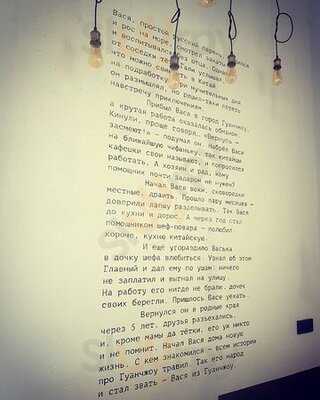 Вася, простой русский парень, родился
и рос на море, смотрел закаты
и воспитывался без отца. Однажды
от соседки тёти Гали услышал,
что можно уехать в Китай
на подработку. Три мучительных дня
он размышлял, но решил-таки лететь
навстречу приключениям.
Прибыл Вася в город Гуанчжоу,
а крутая работа оказалась обманом.
Кинули, проще говоря. «Вернусь –
засмеют!» – подумал он. Набрёл Вася
на ближайшую чифаньку, так китайцы
кафешки свои называют, и попросился
работать. А хозяин и рад, кому
помощник почти задаром не нужен?
Начал Вася воки, сковородки
местные, драить. Прошло пару месяцев –
доверили лапшу разделывать. Так Вася
до кухни и дорос. А через год стал
помощником шеф-повара – полюбил,
короче, кухню китайскую.
И ещё угораздило Васька
в дочку шефа влюбиться. Узнал об этом
Главный и дал ему по ушам: ничего
не заплатил и выгнал на улицу.
На работу его нигде не брали, дочек
своих берегли. Пришлось Васе уехать.
Вернулся он в родные края
через 5 лет, друзья разъехались,
и, кроме мамы да тётки, его уж никто
и не помнит. Начал Вася дома новую
жизнь. С кем знакомился – всем истории
про Гуанчжоу травил. Так его народ
и стал звать – Вася из Гуанчжоу.